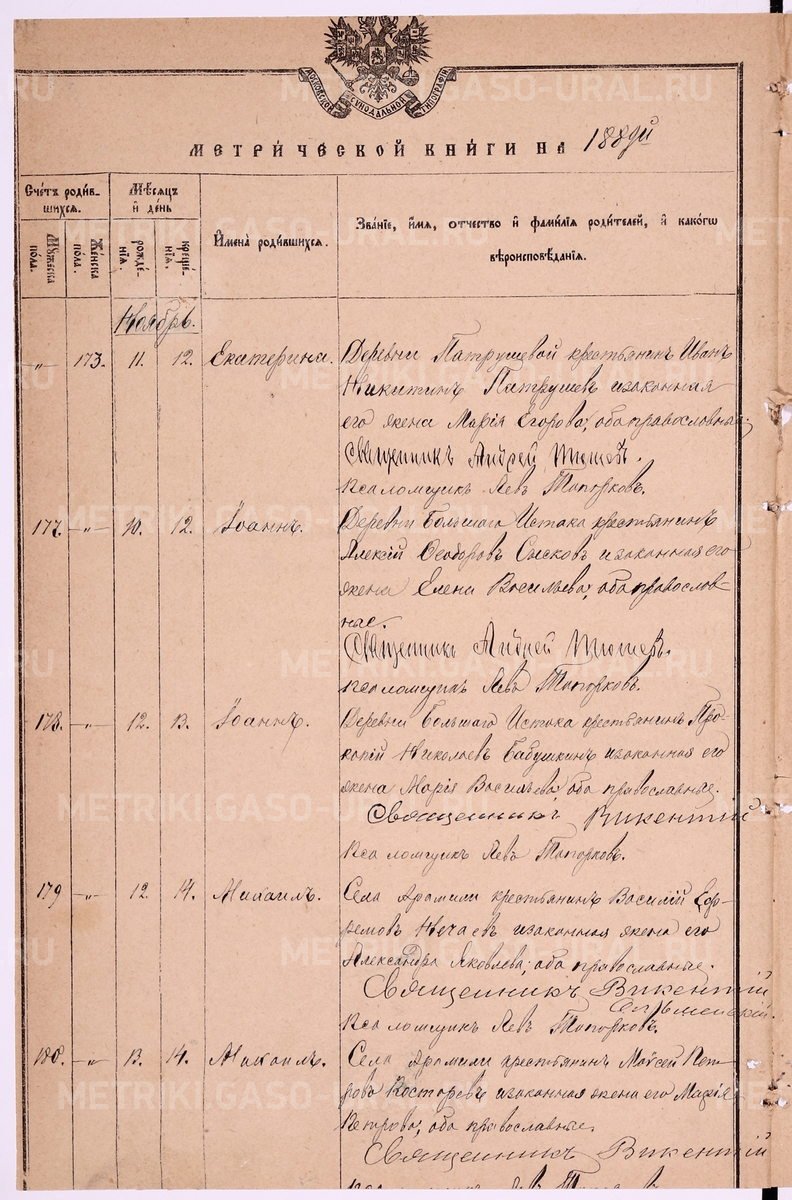 МОСКОВСКОЙ СѴНОДАЛЬНОЙ ТИПОГРАФІИ
МЕТРИ́ЧЕСКОЙ КНИ́ГИ НА 1889й
Счётъ роди́в-
шихся.
Мѣсяцъ
и де́нь
Имена̀ роди́вшихся.
Зва́нїе, и́мя, о́тчество и фами́лїя роди́телей, и како́гѡ
вѣроисповѣ́данїя.
Мꙋ́жеска
по́ла.
Же́нска
по́ла.
рожде́-
нїя.
креще́-
нїя.
Ноябрь.
„ 173. 11. 12. Екатерина. Деревни Патрушевой крестьянинъ Иванъ
Никитинъ Патрушевъ и законная
его жена Марія Егорова, оба православные.
Священникъ Андрей
Псаломщикъ Левъ Топорковъ.
177. „ 10. 12. Іоаннъ. Деревни Большаго Истока крестьянинъ
Алексій Ѳеодоровъ и законная его
жена Елена Васильева, оба православ-
ные.
Священникъ Андрей
Псаломщикъ Левъ Топорковъ.
178. „ 12. 13. Іоаннъ. Деревни Большаго Истока крестьянинъ Про-
копій Николаевъ Бабушкинъ и законная его
жена Марія Васильева, оба православные.
Священникъ Викентій
Псаломщикъ Левъ Топорковъ.
179 „ 12. 14. Михаилъ. Села Арамили крестьянинъ Василій Еф-
ремовъ Нечаевъ и законная жена его
Александра Яковлева, оба православные.
Священникъ Викентій
Псаломщикъ Левъ Топорковъ.
180. „ 13. 14. Михаилъ. Села Арамили крестьянинъ Моѵсей Пет-
ровъ Косторевъ и законная жена его Марія
Петрова, оба православные.
Священникъ Викентій
METRIKI.GASO-URAL.RU